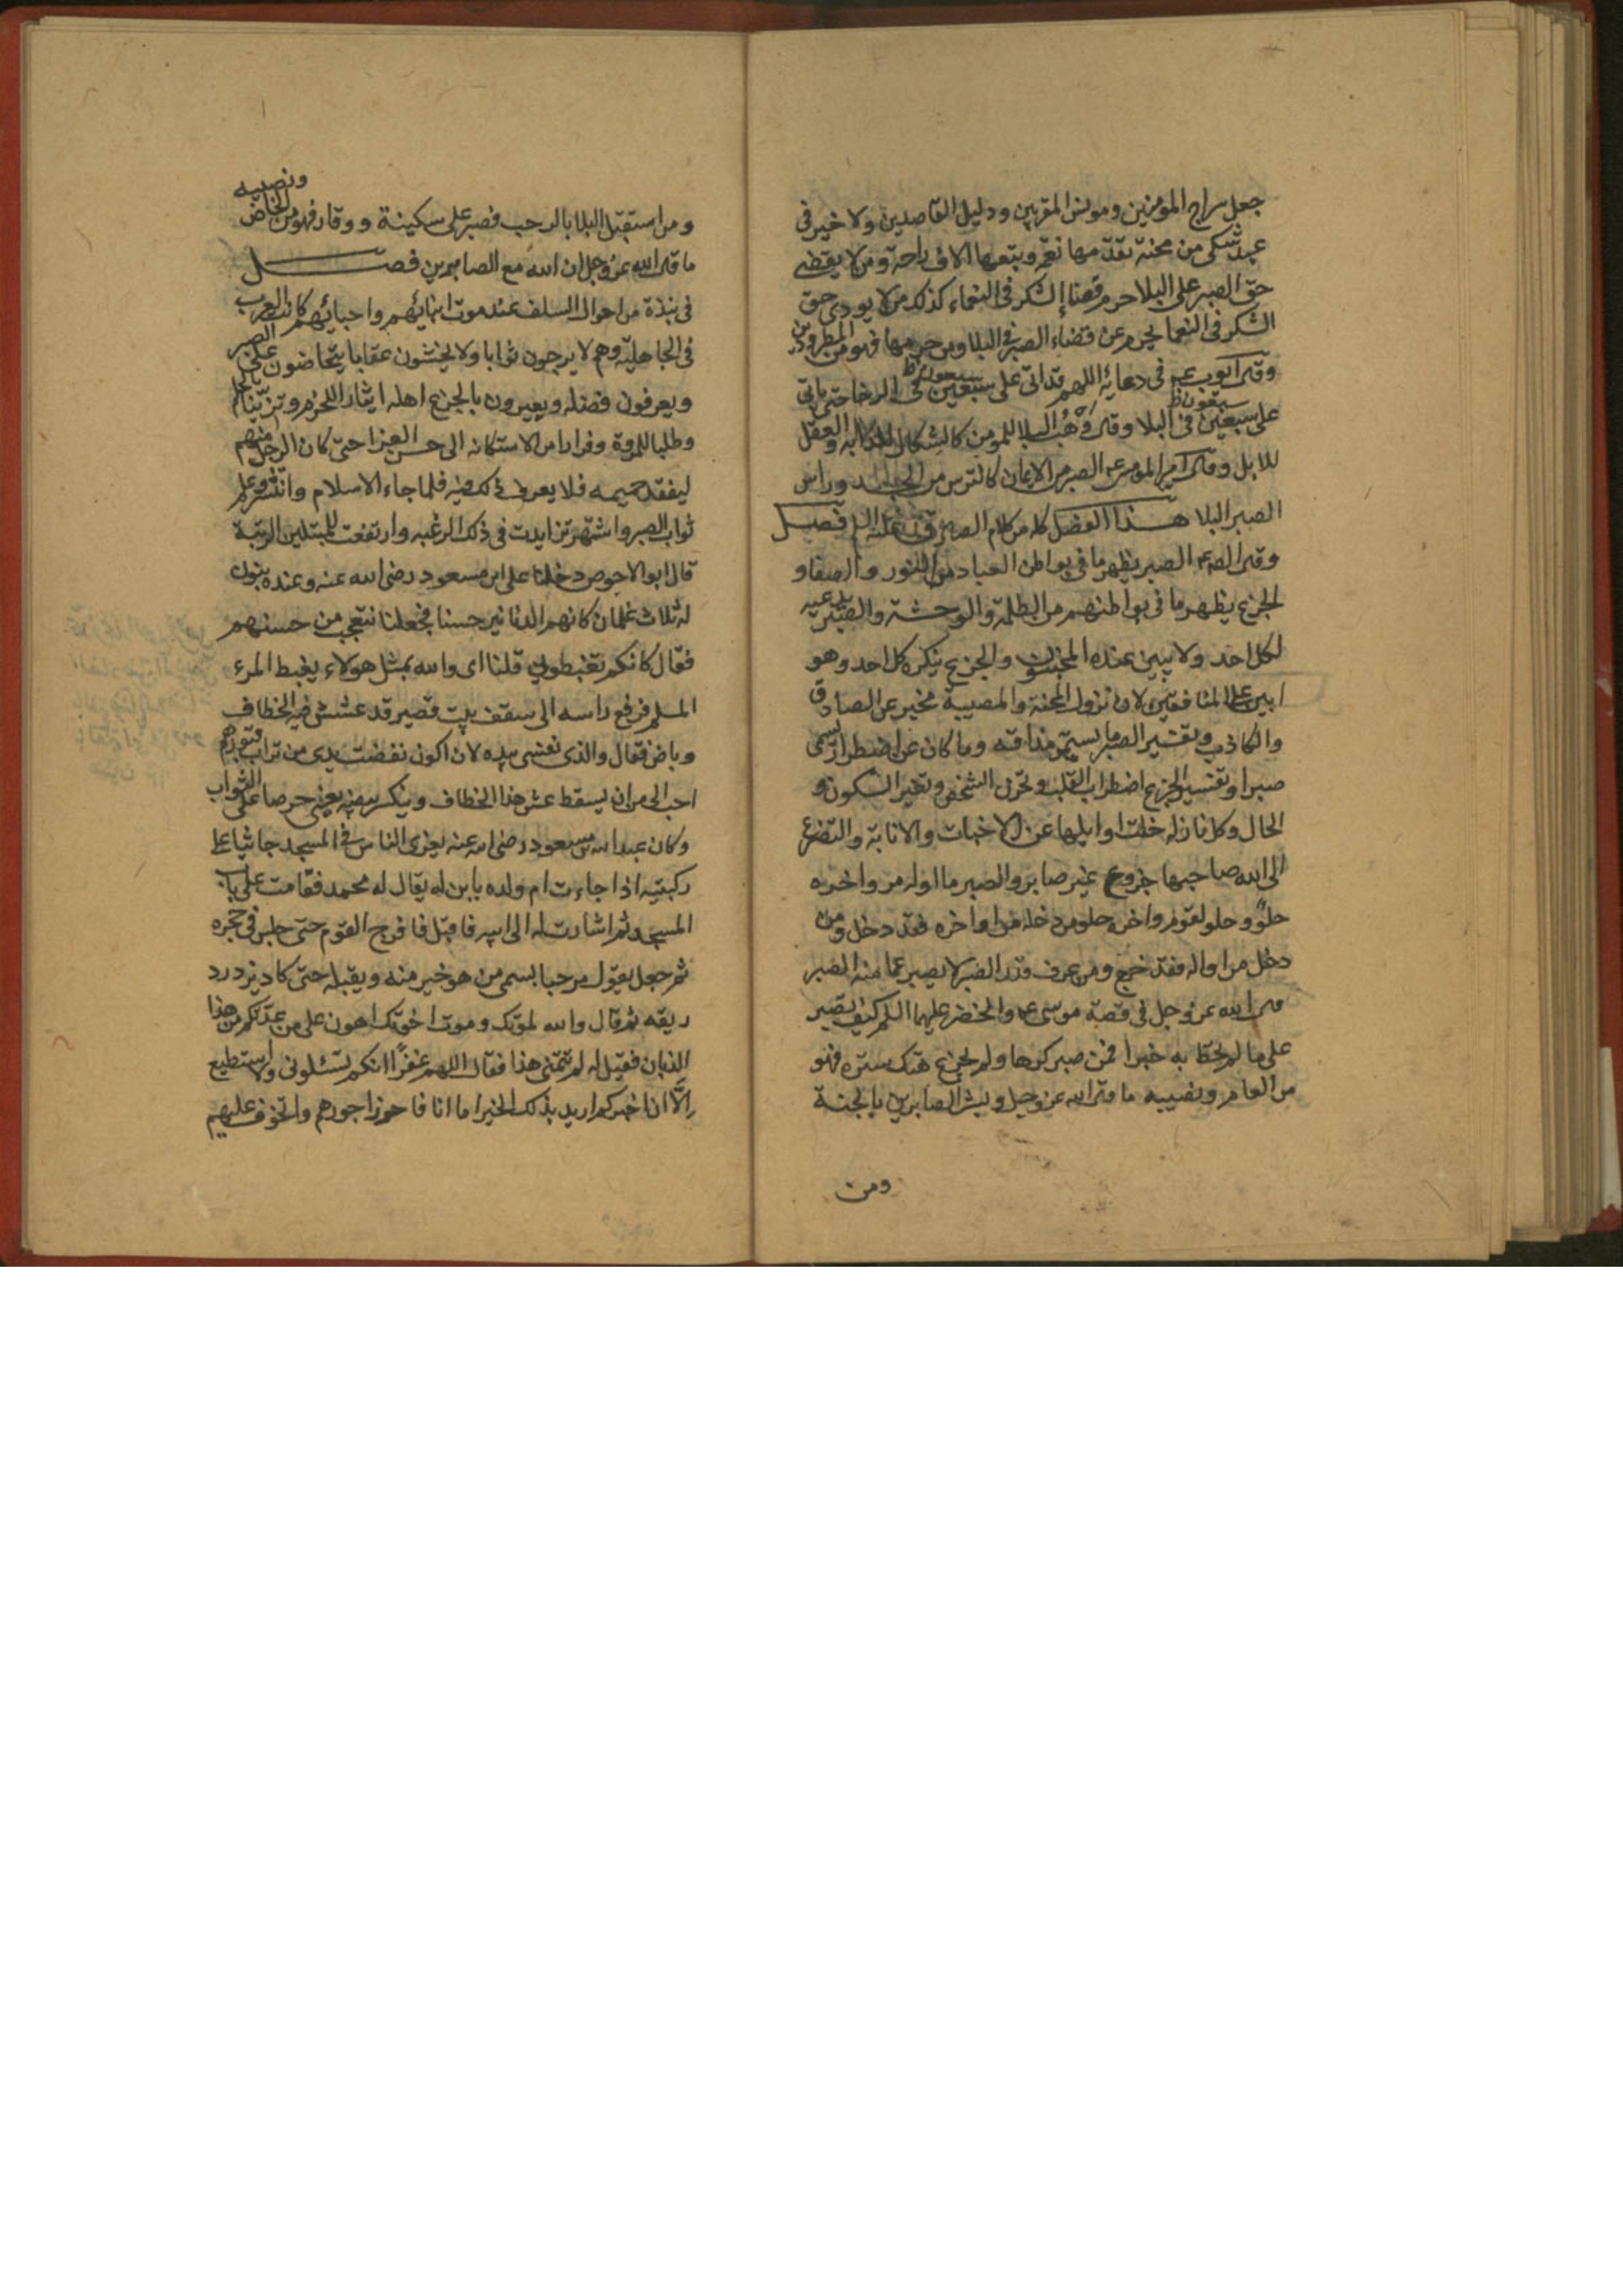 جعل سراج المؤمنين ومونس المقربين ودليل القاصدين ولا خير في
عبد شكى من محنة تقدمها نعم وتبعها الاف راحة ومن لا يقضى
حق الصبر على البلا حرم قضاء الشكر فى النعماء كذلك من لا يودى حق
الشكر فى النعما يحرم عن قضاء الصبر فى البلا ومن حرمها فهو من المطرودين
وقال ايوب عم فى دعائه اللهم قد اتى على سبعين فى الرخا حتى ياتى
على سبعين فى البلا وقال وهب البلا للمومن كالشكال للدابة والعقل
للابل وقال امير المومنين عم الصبر من الايمان كالراس من الجسد وراس
الصبر البلا هذا الفصل كله من كلام الصادق فصل
وقال الصم الصبر يظهر ما فى بواطن العباد من النور والصفا و
الجزع يظهر ما فى بواطنهم من الظلمة والوحشة والصبر يدعيه
لكل احد ولا يبين عنده المخبتون والجزع ينكره كل احد وهو
ابين على المنافقين لان نزول المحنة والمصيبة مخبر عن الصادق
والكاذب وتفسير الصبر ما يستمر مذاقه وما كان عن اضطراب لا يسمى
صبرا وتفسير الجزع اضطراب القلب وتحزن الشخص وتغير السكون و
الحال وكل نازله خلت اوايلها عن الاخبات والانابة والتضرع
الى الله صاحبها جزوع غير صابر والصبر ما اوله مر واخره
حلو وحلو لقوم واخره حلو من دخله من اواخره فقد دخل ومن
دخل من اواله فقد خرج ومن عرف قدر الصبر لا يصبر عما منه الصبر
قال الله عز وجل فى قصة موسى عم والخضر عليهما السلم كيف تصبر
على ما لم تحط به خبرا فمن صبر كرها ولم يجزع هتك ستره فهو
من العام ونصيبه ما قال الله عز وجل وبشر الصابرين بالجنة
ومن
ومن استقبل البلا بالرحب فصبر على سكينة ووقار فهو من الخاص ونصيبه
ما قال الله عز وجل ان الله مع الصابرين فصل
فى نبذة من احوال السلف عند موت ابنائهم واحبائهم كانت العرب
فى الجاهلية وهم لا يرجون ثوابا ولا يخشون عقابا يتحاضون على الصبر
ويعرفون فضله ويعيرون بالجزع اهله ايثارا للحزم وتزينا بالحلم
وطلبا للمروة وفرارا من الاستكانه الى حسن العزا حتى كان الرجل منهم
ليفقد حميمه فلا يعرف ذلك فيه فلما جاء الاسلام وانتشر وعلم
ثواب الصبر واشتهر تزايدت فى ذلك الرغبه وارتفعت للمبتلين الرتبة
قال ابو الاحوص دخلنا على ابن مسعود رضى الله عنه وعنده بنون
له ثلاث غلمان كانهم الدنانير حسنا فجعلنا نتعجب من حسنهم
فقال كانكم تغبطونى قلنا اى والله بمثل هولاء يغبط المرء
المسلم فرفع راسه الى سقف بيت قصير قد عشش فيه الخطاف
وباض فقال والذى نفسى بيده لان اكون نفضت يدى من تراب قبورهم
احب الى من ان يسقط عش هذا الخطاف وينكسر بيضه يعنى حرصا على الثواب
وكان عبد الله بن مسعود رضى الله عنه يقرى الناس فى المسجد جاثيا على
ركبتيه اذا جاءت ام ولده بابن له يقال له محمد فقامت على باب
المسجد ثم اشارت له الى ابيه فاقبل فافرج القوم حتى جلس فى حجره
ثم جعل يقول مرحبا بسمى من هو خير منه ويقبله حتى كاد يزدرد
ريقه ثم قال والله لموتك وموت اخوتك اهون على من عدتكم من هذا
الذبان فقيل له لم تتمنى هذا فقال اللهم غفرا انكم تسئلونى ولا استطيع
إلا ان اخبركم اريد بذلك الخير اما انا فاحرز اجورهم واتخوف عليهم